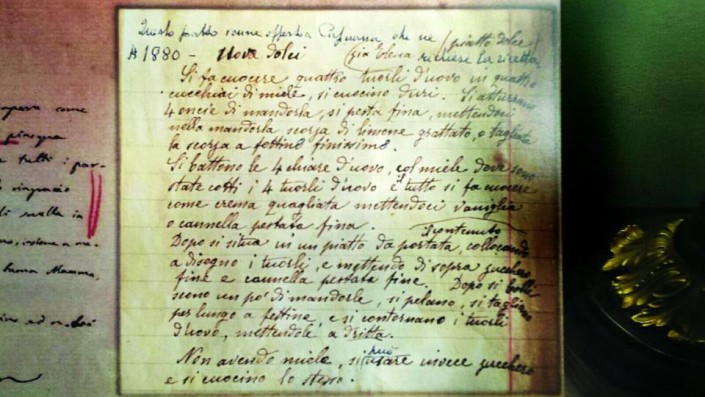 Questo piatto venne offerto a Capuana, che ne
(piatto dolce)
A 1880 - Uova dolci (zia Elena richiese la ricetta
Si fa cuocere quattro tuorli d'uovo in quattro
cucchiai di miele, si cuocino duri. Si atturrano
4 oncie di mandorla, si pesta fina, mettendoci
nella mandorla scorza di limone grattato, o tagliata
la scorza a fettine finissime.
Si battono le 4 chiare d'uovo, col miele dove sono
state cotti i 4 tuorli d'uovo e il tutto si fa cuocere
come crema quagliata mettendoci vaniglia
o cannella pestata fina.
Dopo si situa in un piatto da portata, collocando
a disegno i tuorli, e mettendo di sopra zucchero
fine e cannella pestata fine. Dopo si bolli
scono un po' di mandorle, si pelano, si tagliano
per lungo a fettine, e si contornano i tuorli
d'uovo, mettendole a dritta.
Non avendo miele, si può usare invece zucchero
e si cuocino lo stesso.
come
tutti i par-
ringrazio
svelta in
buona Mamma,